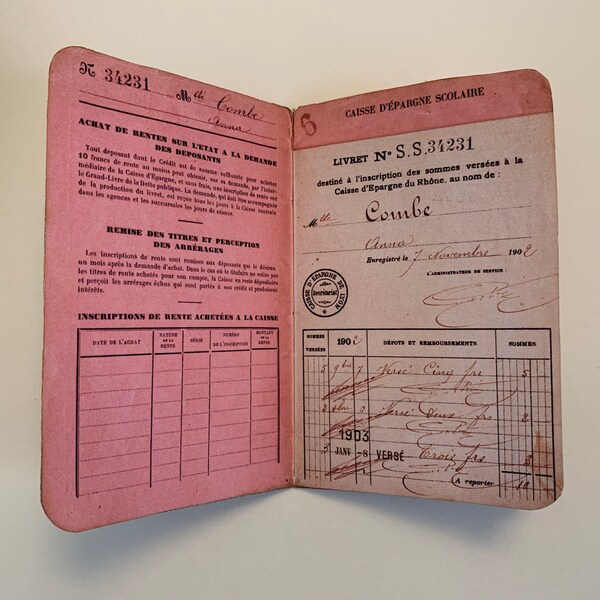 N 34231 Mlle Combe
Anna
ACHAT DE RENTES SUR L'ETAT A LA DEMANDE
DES DEPOSANTS
Tout déposant dont le Crédit est de somme suffisante pour acheter
10 francs de rente au moins peut obtenir, sur sa demande, par l'inter-
médiaire de la Caisse d'Epargne, et sans frais, une inscription de rente sur
le Grand-Livre de la Dette publique. La demande, qui doit être accompagnée
de la production du livret, est reçue tous les jours à la Caisse centrale
dans les agences et les succursales les jours de séance.
REMISE DES TITRES ET PERCEPTION
DES ARRÉRAGES
Les inscriptions de rente sont remises aux déposants qui le désirent
un mois après la demande d'achat. Dans le cas où le titulaire ne retire pas
les titres de rente achetés pour son compte, la Caisse en reste dépositaire
et perçoit les arrérages échus qui sont portés à son crédit et produisent
intérêts.
INSCRIPTIONS DE RENTE ACHETÉES A LA CAISSE
DATE DE L'ACHAT NATURE DE LA RENTE SÉRIE NUMÉRO DE L'INSCRIPTION MONTANT DE LA RENTE
6 CAISSE D'ÉPARGNE SCOLAIRE
LIVRET No S.S. 34231
destiné à l'inscription des sommes versées à la
Caisse d'Epargne du Rhône, au nom de :
Mlle Combe
Anna
Enregistré le 7 Novembre 1902
L'ADMINISTRATEUR DE SERVICE :
CAISSE D'ÉPARGNE DE LYON
Secrétariat
SOMMES VERSÉES 1902 DÉPOTS ET REMBOURSEMENTS SOMMES
5 9bre 7 Versé Cinq frs 5
Versé Deux frs 2
1903
3 JANV -8 VERSÉ Trois frs 3
A reporter 10